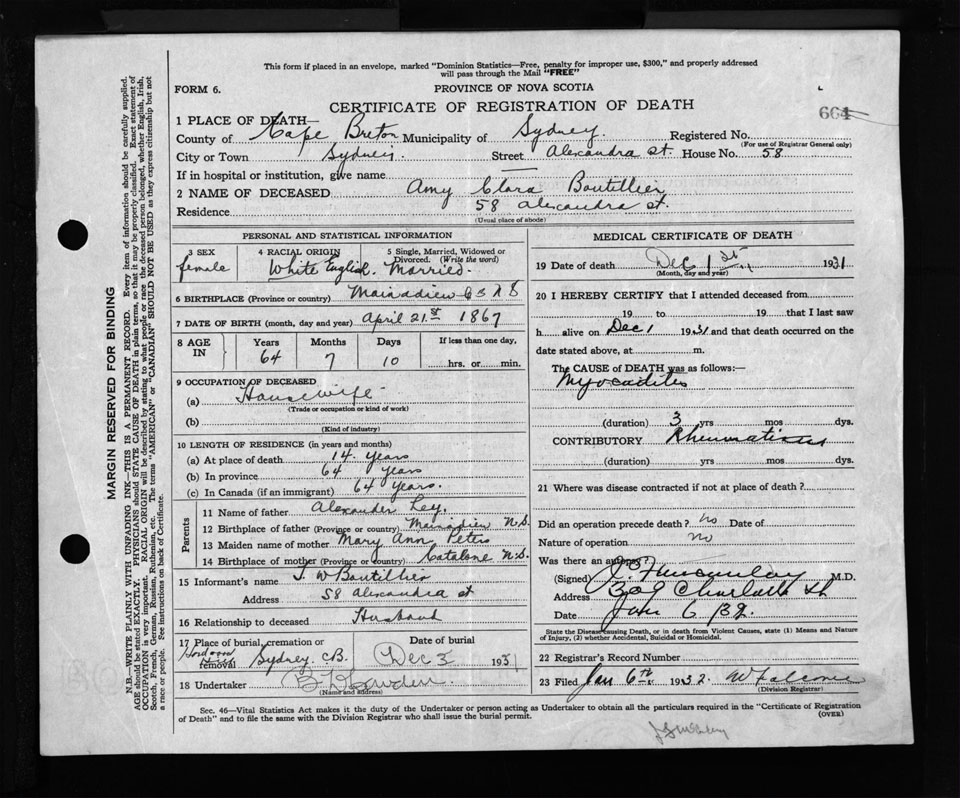 This form if placed in an envelope, marked "Dominion Statistics—Free, penalty for improper use, $300," and properly addressed
will pass through the Mail "FREE"
FORM 6.
PROVINCE OF NOVA SCOTIA
CERTIFICATE OF REGISTRATION OF DEATH
664
1 PLACE OF DEATH—
County of Cape Breton Municipality of Sydney Registered No.
(For use of Registrar General only)
City or Town Sydney. Street Alexandra St. House No. 58
If in hospital or institution, give name —
2 NAME OF DECEASED Amy Clara Boutillier
Residence 58 Alexandra St.
(Usual place of abode)
PERSONAL AND STATISTICAL INFORMATION
3 SEX 4 RACIAL ORIGIN 5 Single, Married, Widowed or Divorced. (Write the word)
female White English. Married.
6 BIRTHPLACE (Province or country) Mainadieu C B N S
7 DATE OF BIRTH (month, day and year) April 21st 1867
8 AGE IN Years Months Days If less than one day,
64 7 10 hrs. or min.
9 OCCUPATION OF DECEASED
(a) Housewife
(Trade or occupation or kind of work)
(b)
(Kind of industry)
10 LENGTH OF RESIDENCE (in years and months)
(a) At place of death 14 years
(b) In province 64 years
(c) In Canada (if an immigrant) 64 years.
Parents
11 Name of father Alexander Ley.
12 Birthplace of father (Province or country) Mainadieu N.S.
13 Maiden name of mother Mary Ann Peters
14 Birthplace of mother (Province or country) Catalone N.S.
15 Informant's name J. W Boutillier
Address 58 Alexandra st
16 Relationship to deceased Husband
17 Place of burial, cremation or removal Date of burial
Sydney. CB. Dec 3 1931
18 Undertaker
(Name and address)
MEDICAL CERTIFICATE OF DEATH
19 Date of death Dec 1st 1931
(Month, day and year)
20 I HEREBY CERTIFY that I attended deceased from
19 to 19 that I last saw
h alive on Dec 1 1931 and that death occurred on the
date stated above, at m.
The CAUSE of DEATH was as follows:—
Myocaditis
(duration) 3 yrs mos dys.
CONTRIBUTORY Rheumatism
(duration) yrs mos dys.
21 Where was disease contracted if not at place of death?
Did an operation precede death? no Date of
Nature of operation no
Was there an autopsy
(Signed) M.D.
Address Charlotte St
Date Jan 6/32
State the Disease causing Death, or in death from Violent Causes, state (1) Means and Nature
of Injury, (2) whether Accidental, Suicidal or Homicidal.
22 Registrar's Record Number
23 Filed Jan 6th 1932. W Falconer
(Division Registrar)
Sec. 46—Vital Statistics Act makes it the duty of the Undertaker or person acting as Undertaker to obtain all the particulars required in the "Certificate of Registration
of Death" and to file the same with the Division Registrar who shall issue the burial permit.
(OVER)
MARGIN RESERVED FOR BINDING
N.B.—WRITE PLAINLY WITH UNFADING INK—THIS IS A PERMANENT RECORD. Every item of information should be carefully supplied.
AGE should be stated EXACTLY. PHYSICIANS should STATE CAUSE OF DEATH in plain terms, so that it may be properly classified. Exact statement of
OCCUPATION is very important. RACIAL ORIGIN will be described by stating to what people or race the deceased person belonged, whether English, Irish,
Scotch, French, German, Russian, Ruthenian, etc. The terms "AMERICAN" or "CANADIAN" SHOULD NOT BE USED as they express citizenship but not
a race or people. See instructions on back of Certificate.